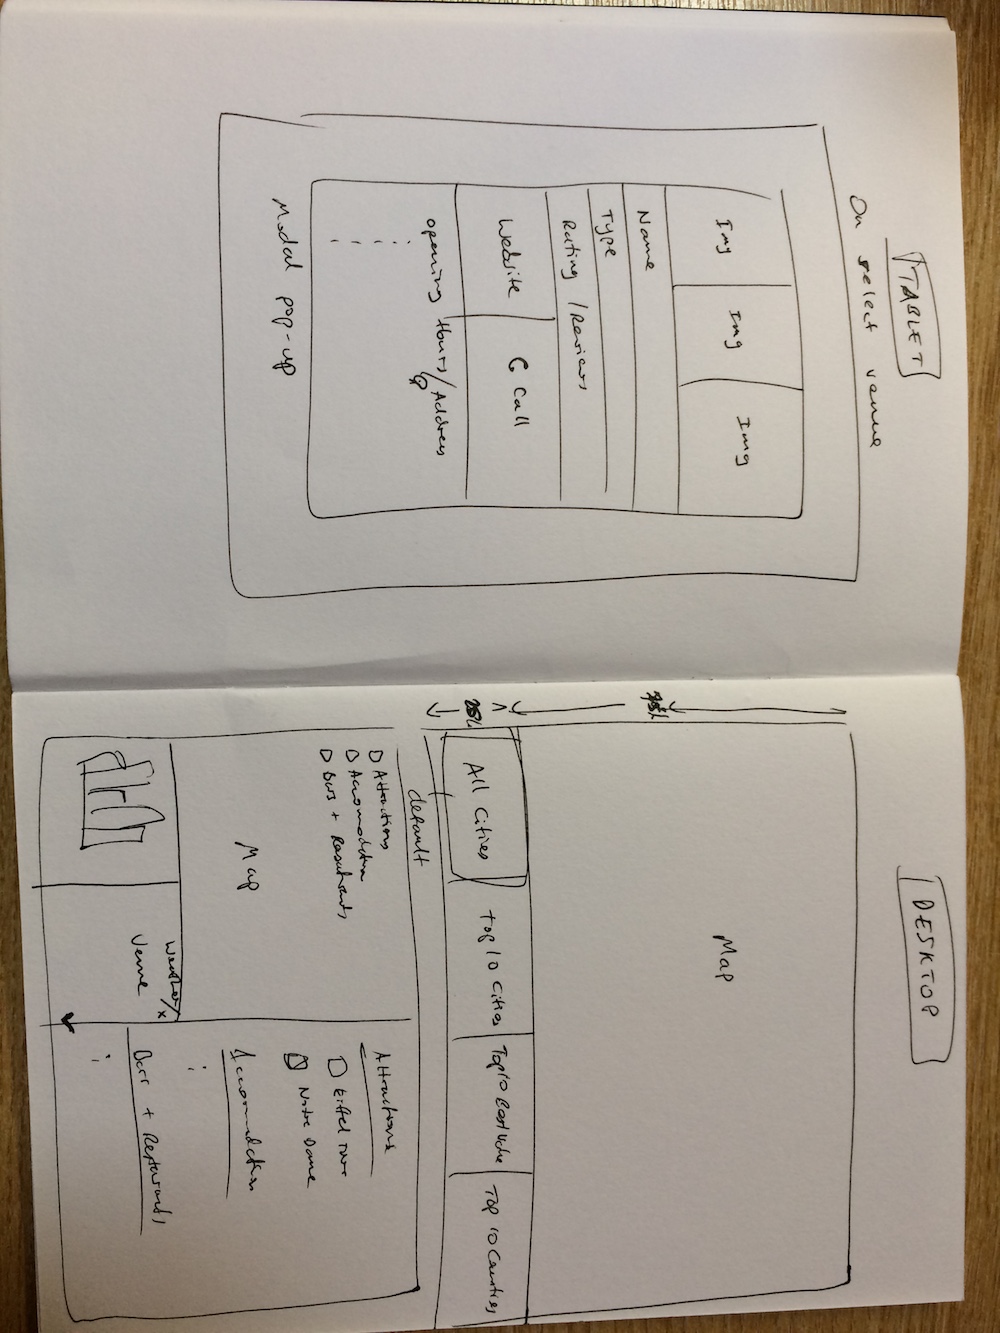 TABLET
On select venue
Img
Img
Img
Name
Type
Rating / Reviews
Website
Call
opening Hours / Address
Modal pop-up
DESKTOP
Map
75%
25%
All Cities
Top 10 Cities
Top 10 Best Value
Top 10 Countries
default
Attractions
Accomodation
Bars + Resturants
Map
Weather/
x
Venue
Attractions
Eiffel Tower
Notre Dame
Accomodation
Bars + Resturants